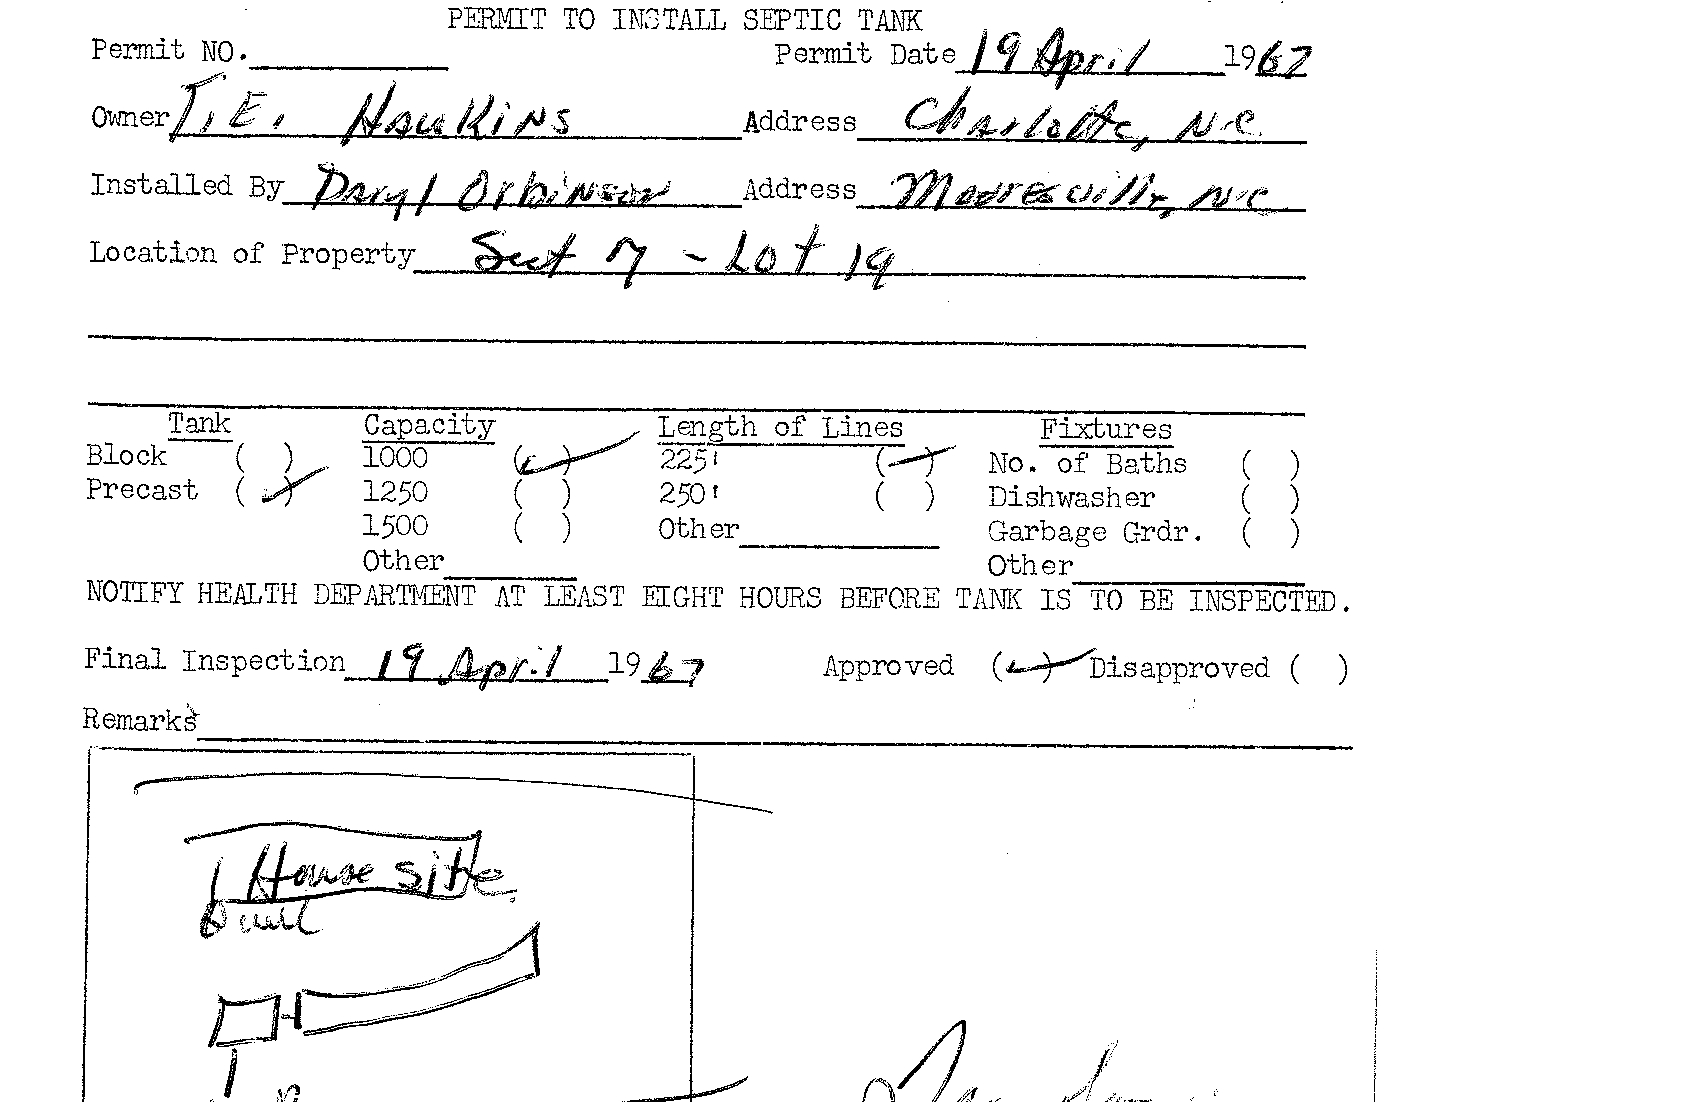 PERMIT TO INSTALL SEPTIC TANK
Permit NO. Permit Date 19 April 1967
Owner T. E. Haukins Address Charlotte, N.C.
Installed By Daryl Orbinson Address Mooresville, N.C.
Location of Property Sect 7 - Lot 19
Tank Capacity Length of Lines Fixtures
Block ( ) 1000 (✓) 225' (✓) No. of Baths ( )
Precast (✓) 1250 ( ) 250' ( ) Dishwasher ( )
1500 ( ) Other Garbage Grdr. ( )
Other Other
NOTIFY HEALTH DEPARTMENT AT LEAST EIGHT HOURS BEFORE TANK IS TO BE INSPECTED.
Final Inspection 19 April 1967 Approved (✓) Disapproved ( )
Remarks
House site